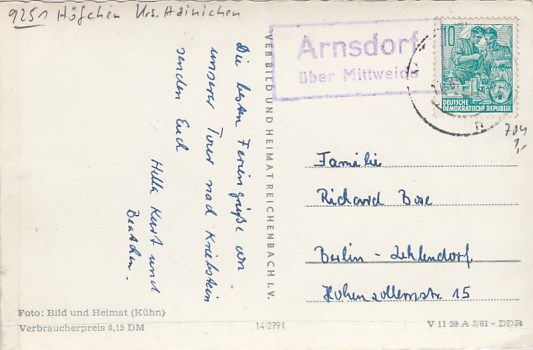 9251 Höfchen Krs. Hainichen
Arnsdorf
über Mittweida
10
DEUTSCHE
DEMOKRATISCHE REPUBLIK
704
1,-
Die besten Feriengrüße von
unserer Tour nach Kriebstein
senden Euch
Hella Kurt und
VEB BILD UND HEIMAT REICHENBACH I. V.
Familie
Richard Bose
Berlin - Zehlendorf
Hohenzollernstr 15
Foto: Bild und Heimat (Kühn)
Verbraucherpreis 0,15 DM
14/2791
V 11 28 A 3/61 - DDR